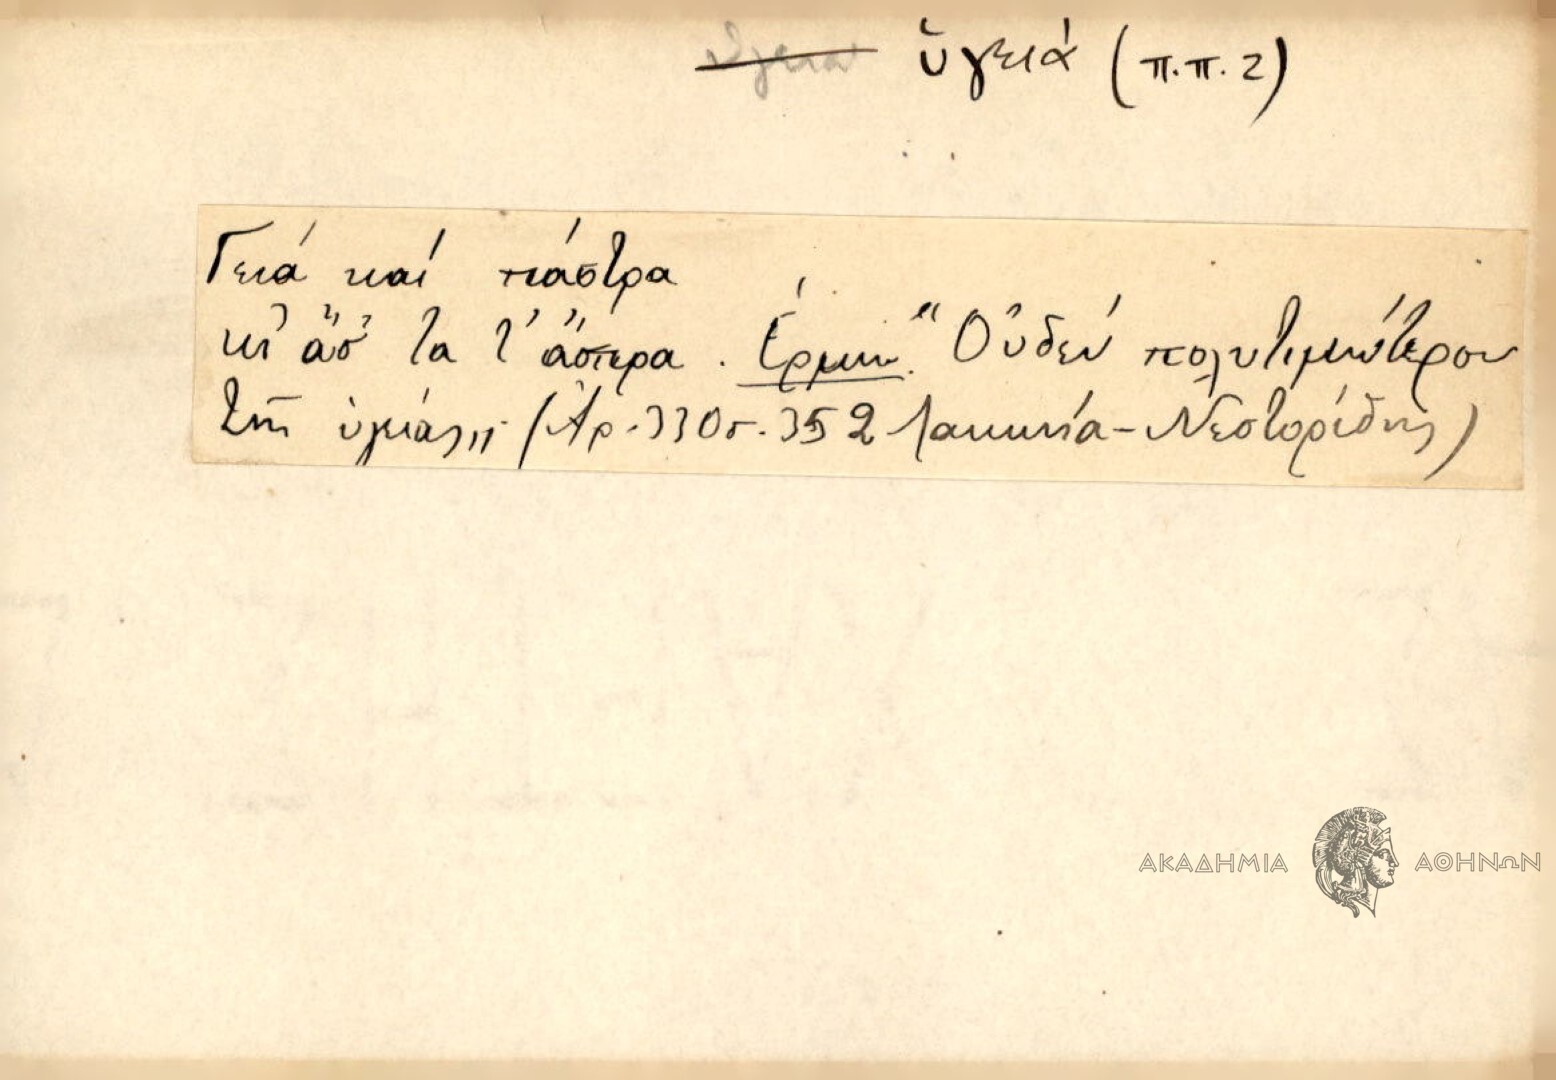 ὑγειά (π.π. 2)
Γειά καί πάστρα
κι' ἄσ' τα τ' ἄσπρα. Ἑρμην. "Οὐδέν πολυτιμώτερον
τῆς ὑγιάς" (Ἀρ. 330 σ. 352 Λακωνία - Νεστορίδης)
ΑΚΑΔΗΜΙΑ ΑΘΗΝΩΝ